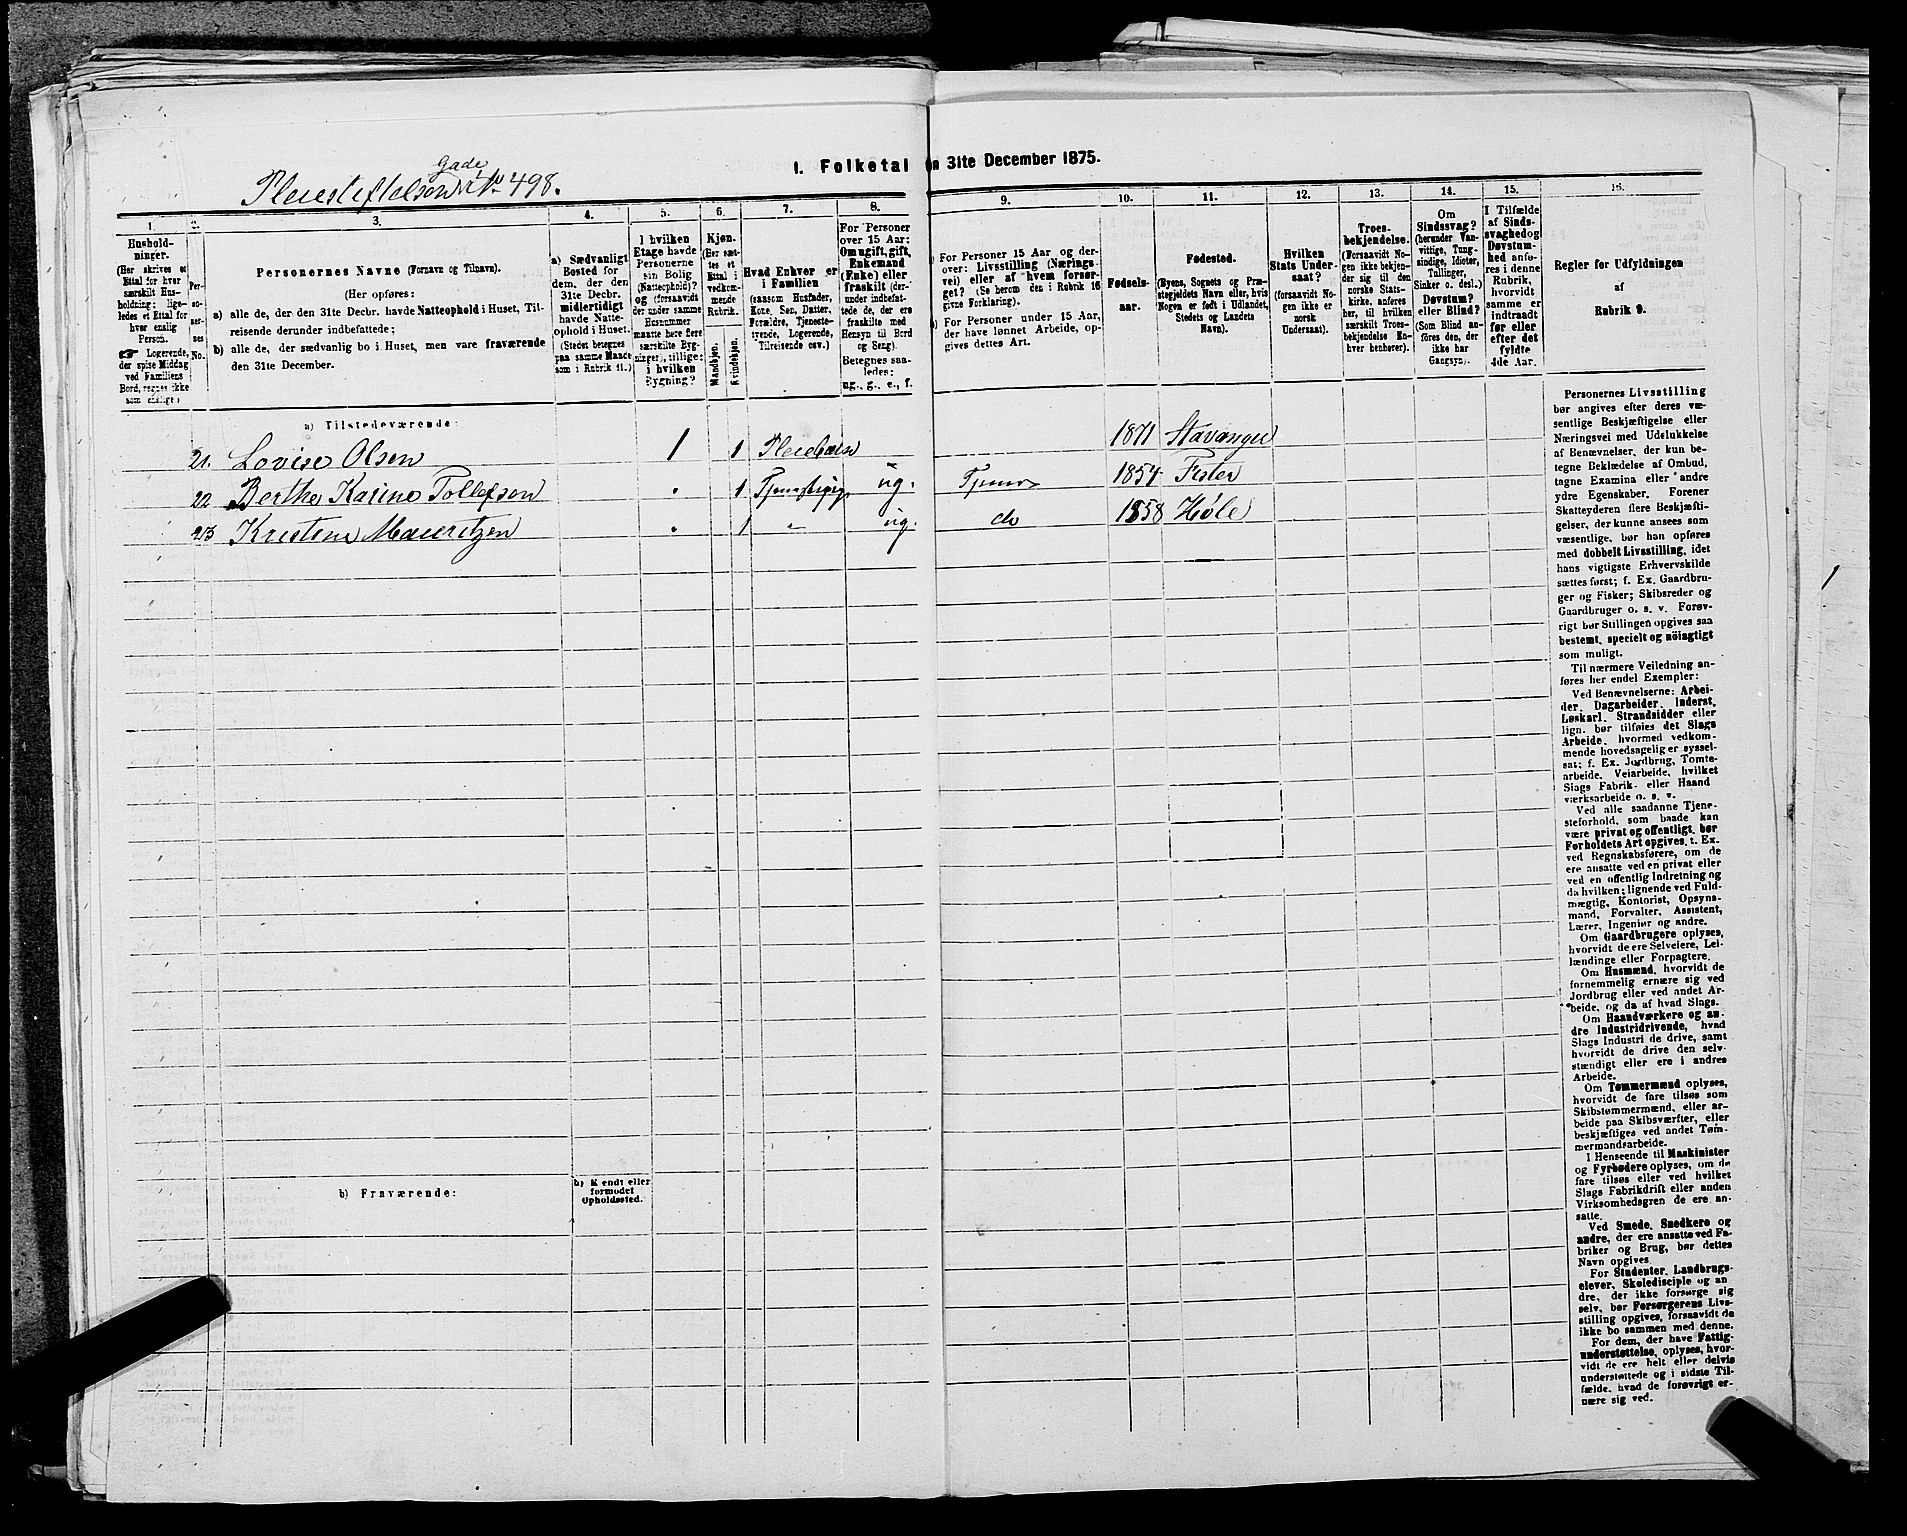 Gade
Pleiestiftelsen No 498.
I. Folketal
n 31te December 1875.
1.
2.
3.
4.
5.
6.
7.
8.
9.
10.
11.
12.
13.
14.
15.
16.
Hushold-
ninger.
(Her skrives et
Ettal for hver
særskilt Hus-
holdning; lige-
ledes et Ettal for
hver enslig
Person.
☞ Logerende,
der spise Middag
ved Familiens
Bord, regnes ikke
som enslige)
Per-
so-
ner-
nes
No.
Personernes Navne (Fornavn og Tilnavn).
(Her opføres:
a) alle de, der den 31te Decbr. havde Natteophold i Huset, Til-
reisende derunder indbefattede;
b) alle de, der sædvanlig bo i Huset, men vare fraværende
den 31te December.
a) Sædvanligt
Bosted for
dem, der den
31te Decbr.
midlertidigt
havde Natte-
ophold i Huset.
(Stedet betegnes
paa samme Maade
som i Rubrik 11.)
I hvilken
Etage havde
Personerne
sin Bolig
(Natteophold)?
og (forsaavidt
der under samme
Husnummer
maatte være flere
særskilte Byg-
ninger), tillige:
i hvilken
Bygning?
Kjøn.
(Her sæt-
tes et
Ettal i
vedkom-
mende
Rubrik.
Mandkjøn.
Kvindekjøn.
Hvad Enhver er
i Familien
(saasom Husfader,
Kone, Søn, Datter,
Forældre, Tjeneste-
tyende, Logerende,
Tilreisende osv.)
For Personer
over 15 Aar:
Om ugift, gift,
Enkemand
(Enke) eller
fraskilt (der-
under indbefat-
tede de, der ere
fraskilte med
Hensyn til Bord
og Seng).
Betegnes saa-
ledes:
ug., g., e., f.
a) For Personer 15 Aar og der-
over: Livsstilling (Nærings-
vei) eller af hvem forsør-
get? (Se herom den i Rubrik 16
givne Forklaring).
b) For Personer under 15 Aar,
der have lønnet Arbeide, op-
gives dettes Art.
Fødsels-
aar.
Fødested.
(Byens, Sognets og Præ-
stegjeldets Navn eller, hvis
Nogen er født i Udlandet,
Stedets og Landets
Navn).
Hvilken
Stats Under-
saat?
(forsaavidt No-
gen ikke er
norsk
Undersaat).
Troes-
bekjendelse.
(Forsaavidt No-
gen ikke bekjen-
der sig til den
norske Stats-
kirke, anføres
her, til hvilken
særskilt Troes-
bekjendelse En-
hver benhører).
Om
Sindssvag?
(herunder Van-
vittige, Tung-
sindige, Idioter,
Tullinger,
Sinker o. desl.)
Døvstum?
eller Blind?
(Som Blind an-
føres den, der
ikke har
Gangsyn).
I Tilfælde
af Sinds-
svaghed og
Døvstum-
hed anfø-
res i denne
Rubrik,
hvorvidt
samme er
indtraadt
før eller
efter det
fyldte
4de Aar.
Regler for Udfyldningen
af
Rubrik 9.
a) Tilstedeværende:
21. Lovise Olsen 1 1 Pleiebarn 1871 Stavanger
22 Berthe Karine Tollefsen " 1 ug. 1854 Fister
23 Kristine Mauritzen " 1 " ug. do 1858 Høle
b) Fraværende:
b) Kjendt eller
formodet
Opholdssted.
Personernes Livsstilling
bør angives efter deres væ-
sentlige Beskjæftigelse eller
Næringsvei med Udelukkelse
af Benævnelser, der kun be-
tegne Beklædelse af Ombud,
tagne Examina eller andre
ydre Egenskaber. Forener
Skatteyderen flere Beskjæfti-
gelser, der kunne ansees som
væsentlige, bør han opføres
med dobbelt Livsstilling, idet
hans vigtigste Erhvervskilde
sættes først; f. Ex. Gaardbru-
ger og Fisker; Skibsreder og
Gaardbruger o. s. v. Forøv-
rigt bør Stillingen opgives saa
bestemt, specielt og nöiagtigt
som muligt.
Til nærmere Veiledning an-
føres her endel Exempler:
Ved Benævnelserne: Arbei-
der, Dagarbeider, Inderst,
Løskarl, Strandsidder eller
lign. bør tilføies det Slags
Arbeide, hvormed vedkom-
mende hovedsagelig er syssel-
sat; f. Ex. Jordbrug, Tomte-
arbeide, Veiarbeide, hvilket
Slags Fabrik- eller Haand
værksarbeide o. s. v.
Ved alle saadanne Tjene-
steforhold, som baade kan
være privat og offentligt, bør
Forholdets Art opgives, t. Ex.
ved Regnskabsførere, om de
ere ansatte ved en privat eller
ved en offentlig Indretning og
da hvilken; lignende ved Fuld-
mægtig, Kontorist, Opsyns-
mand, Forvalter, Assistent,
Lærer, Ingeniør og andre.
Om Gaardbrugere oplyses,
hvorvidt de ere Selveiere, Lei-
lændinge eller Forpagtere.
Om Husmænd, hvorvidt de
fornemmelig ernære sig ved
Jordbrug eller ved andet Ar-
beide, og da af hvad Slags.
Om Haandværkere og an-
dre Industridrivende, hvad
Slags Industri de drive, samt
hvorvidt de drive den selv-
stændigt eller ere i andres
Arbeide.
Om Tømmermænd oplyses,
hvorvidt de fare tilsøs som
Skibstømmermænd, eller ar-
beide paa Skibsværfter, eller
beskjæftiges ved andet Tøm-
mermandsarbeide.
I Henseende til Maskinister
og Fyrbødere oplyses, om de
fare tilsøs eller ved hvilket
Slags Fabrikdrift eller anden
Virksomhedsgren de ere an-
satte.
Ved Smede, Snedkere og
andre, der ere ansatte ved Fa-
briker og Brug, bør dettes
Navn opgives.
For Studenter, Landbrugs-
elever, Skoledisciple og an
dre, der ikke forsørge sig
selv, bør Forsørgerens Livs-
stilling opgives, forsaavidt de
ikke bo sammen med denne.
For dem, der have Fattig-
understøttelse, oplyses, hvor-
vidt de ere helt eller delvis
understøttede og i sidste Til-
fælde, hvad de forøvrigt er-
nære sig ved.